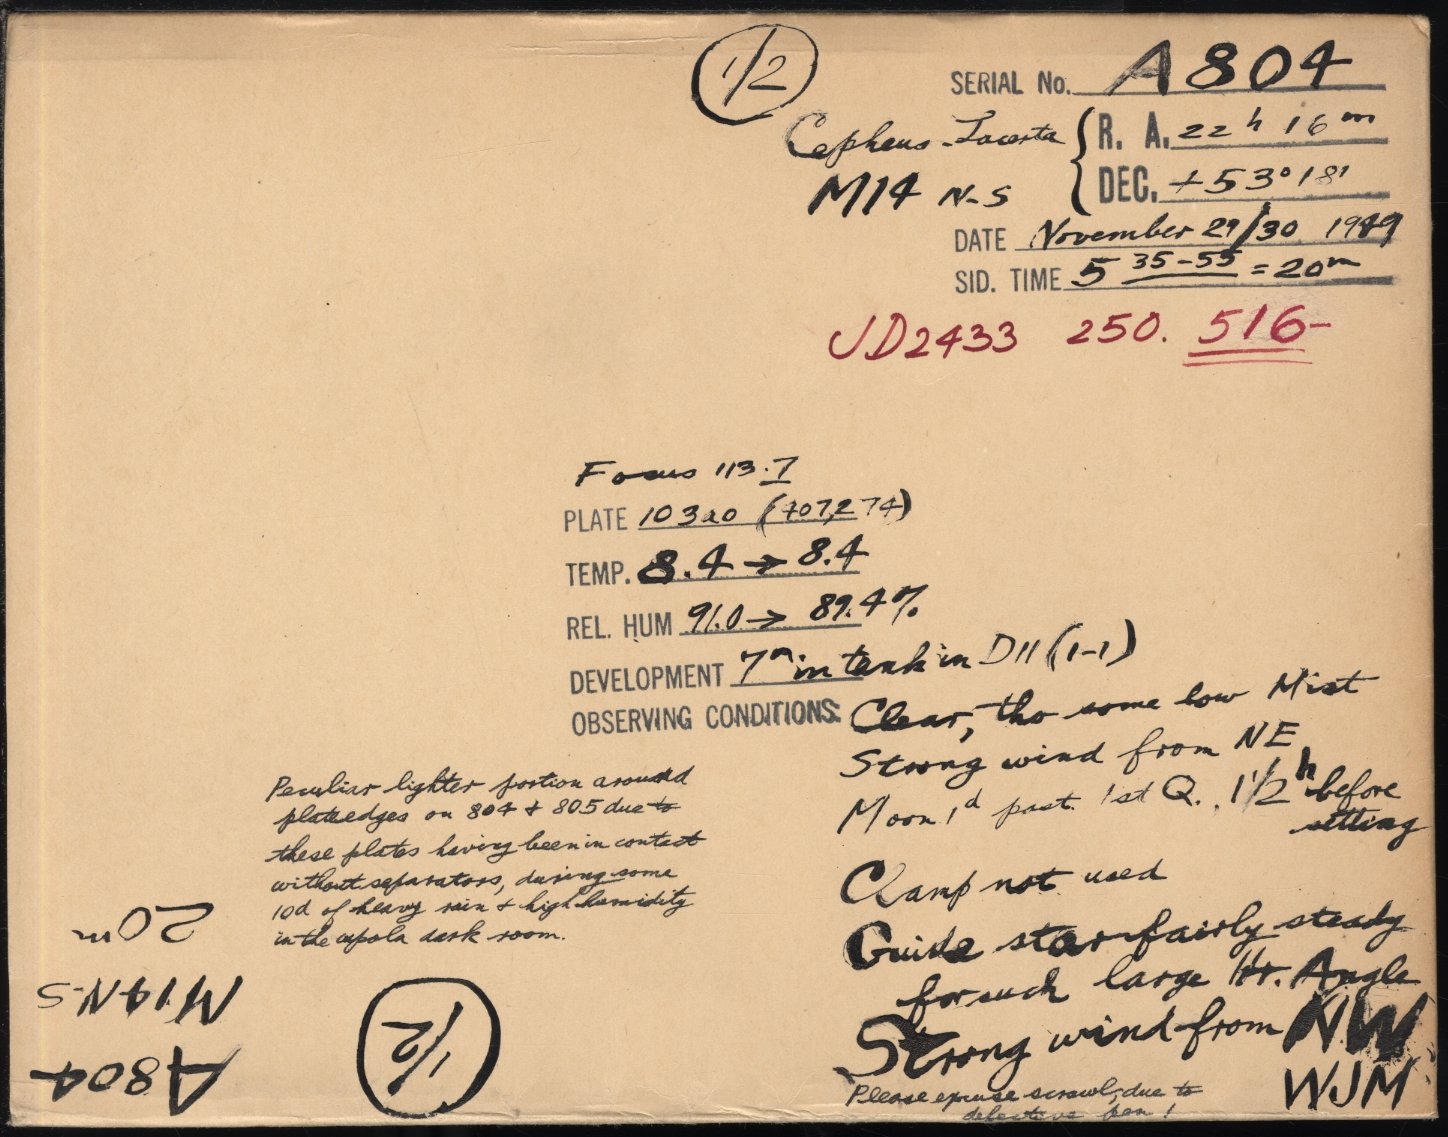 1/2
SERIAL No. A804
Cepheus-Lacerta { R. A. 22h 16m
M14 N-S DEC. +53°18'
DATE November 29/30 1949
SID. TIME 5 35-55 = 20m
JD2433 250. 516-
Focus 113.7
PLATE 103a0 (407,274)
TEMP. 8.4 → 8.4
REL. HUM 91.0 → 89.4%
DEVELOPMENT 7m in tank in D11 (1-1)
OBSERVING CONDITIONS: Clear, tho some low Mist
Strong wind from NE
Moon 1d past 1st Q. 1 1/2h before
setting
Clamp not used
Guide star fairly steady
for such large Hr. Angle
Strong wind from NW
WJM
Please excuse scrawl, due to
defective pen!
Peculiar lighter portion around
plate edges on 804 + 805 due to
these plates having been in contact
without separators, during some
10d of heavy rain + high humidity
in the cupola dark room.
A804
M14 N-S
20m
1/2